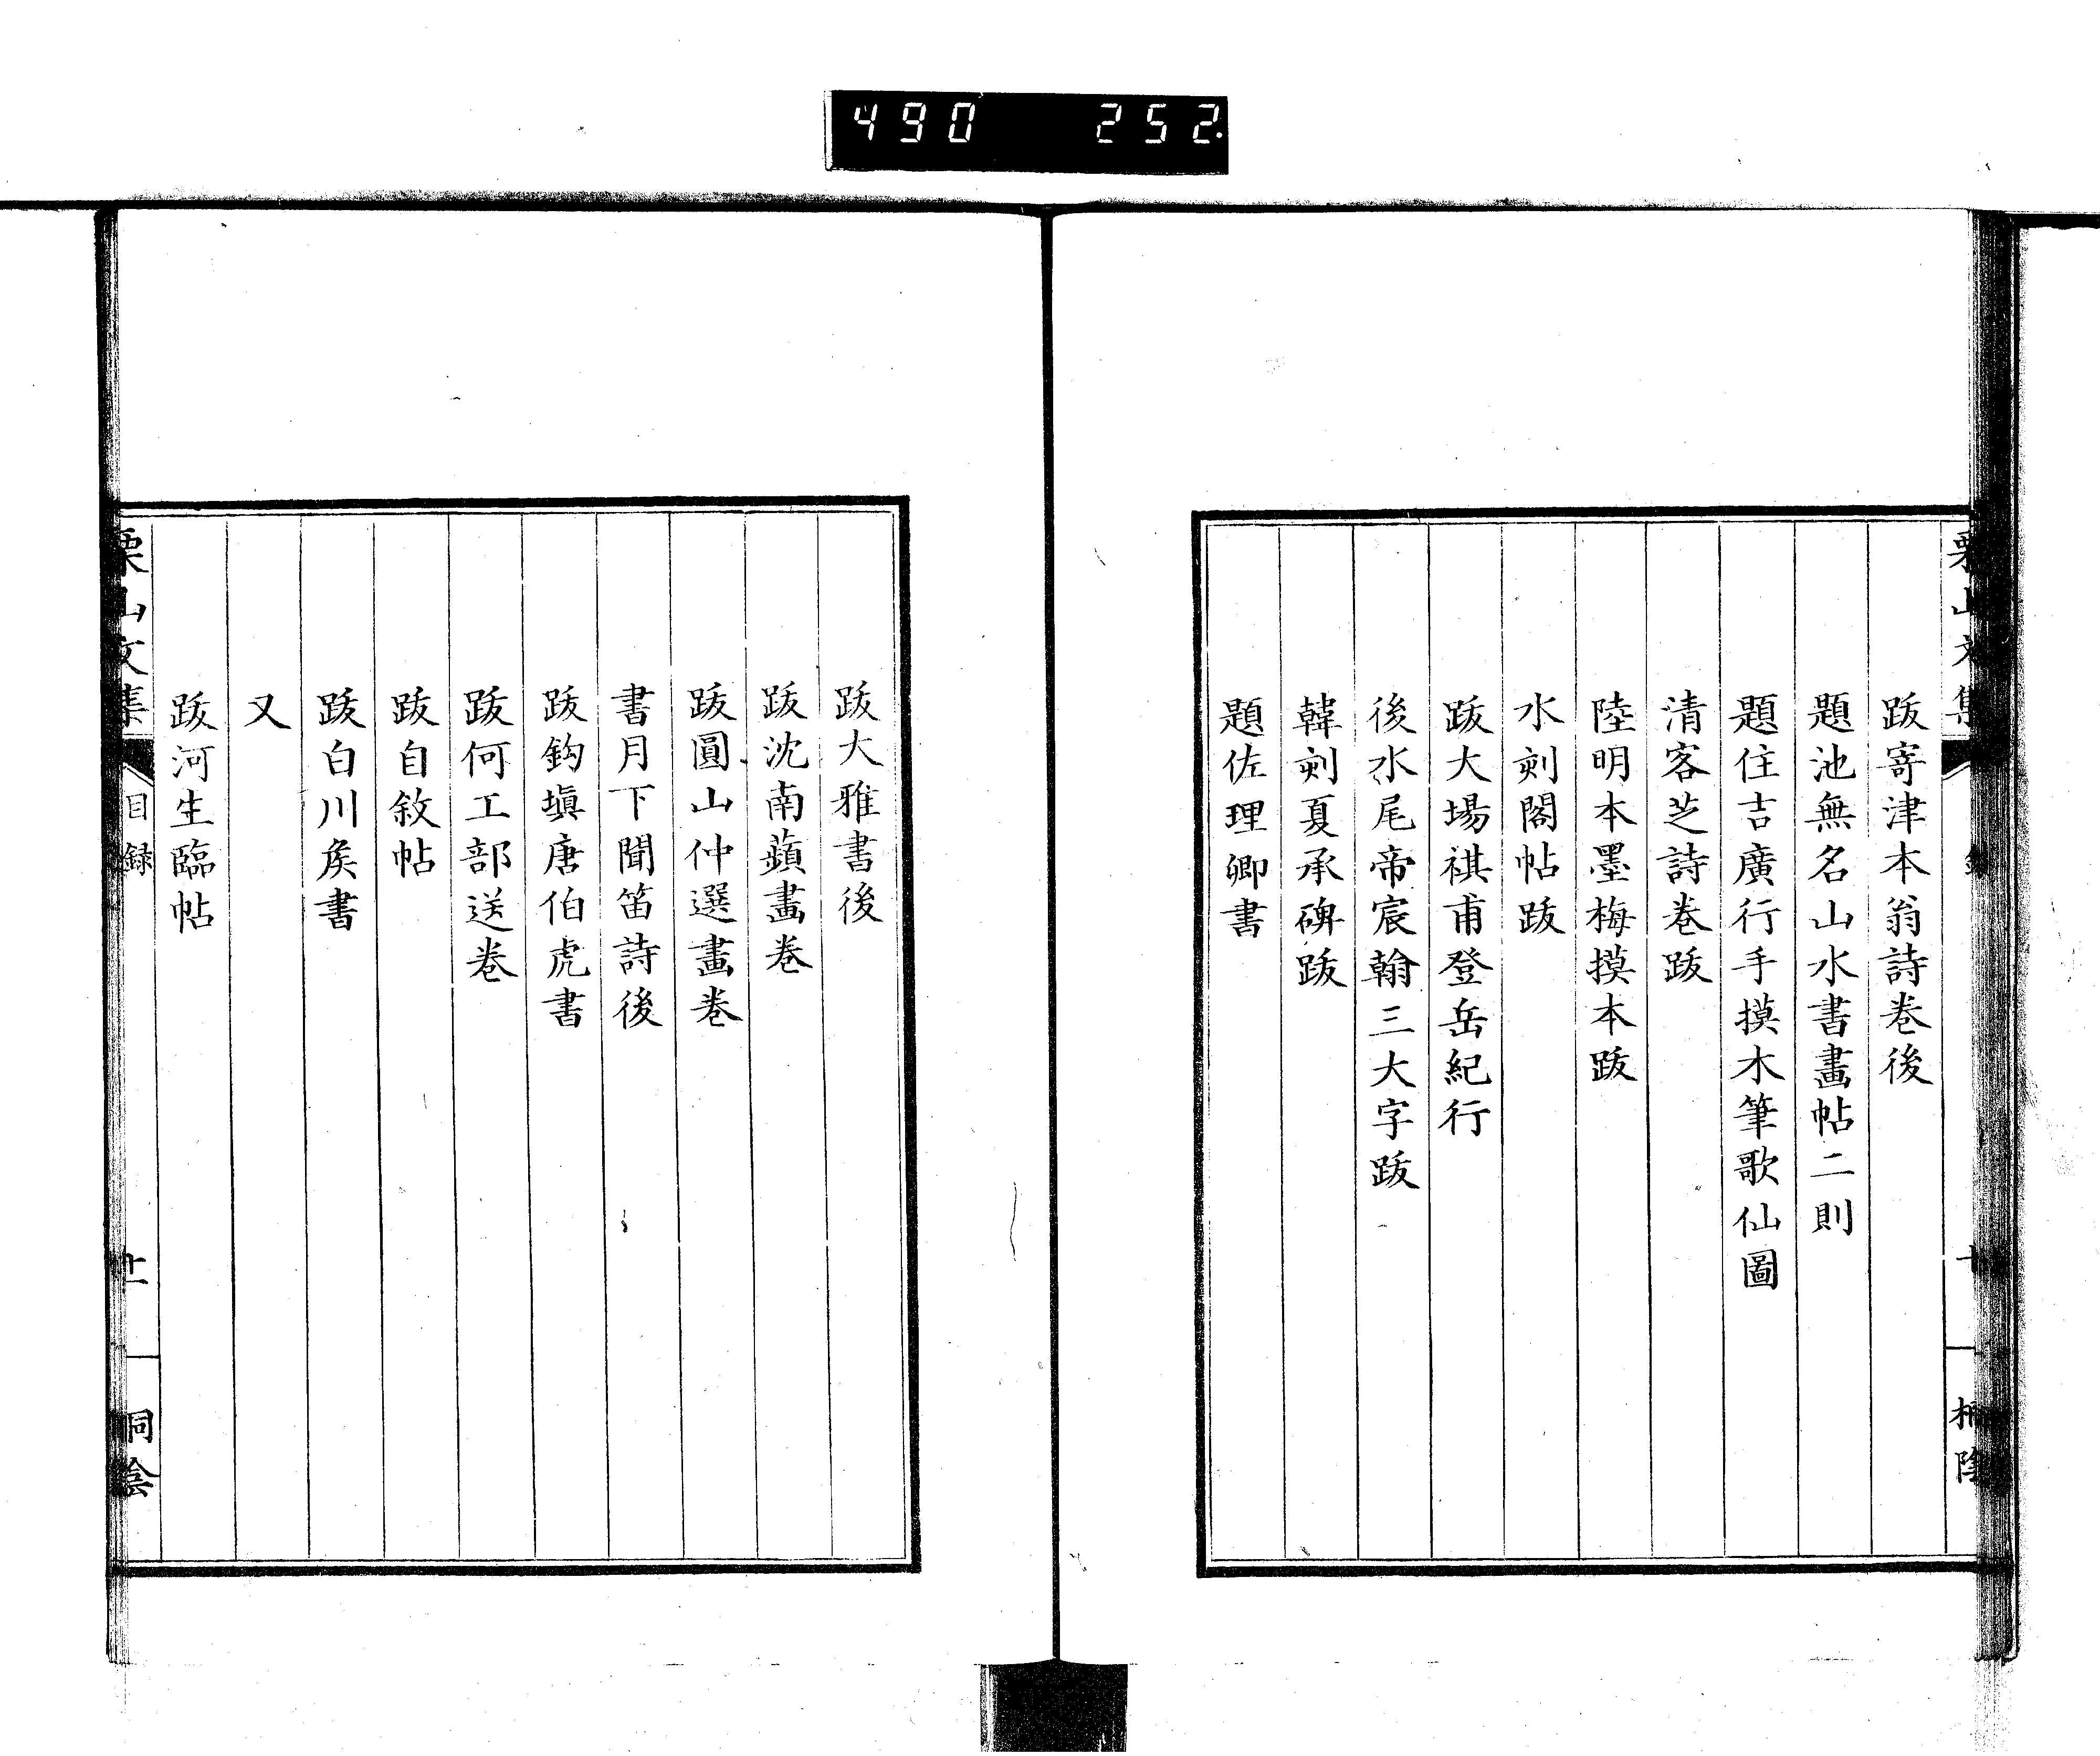 490 252.
跋寄津本翁詩巻後
題池無名山水書畵帖二則
題住吉廣行手摸木筆歌仙圖
清客芝詩巻跋
陸明本墨梅摸本跋
水刻閣帖跋
跋大場祺甫登岳紀行
後水尾帝宸翰三大字跋
韓刻夏承碑跋
題佐理卿書
跋大雅書後
跋沈南蘋畵巻
跋圓山仲選畵巻
書月下聞笛詩後
跋鈎塡唐伯虎書
跋何工部送巻
跋自敘帖
跋白川矦書
又
跋河生臨帖
栗山文集 目録 桐陰